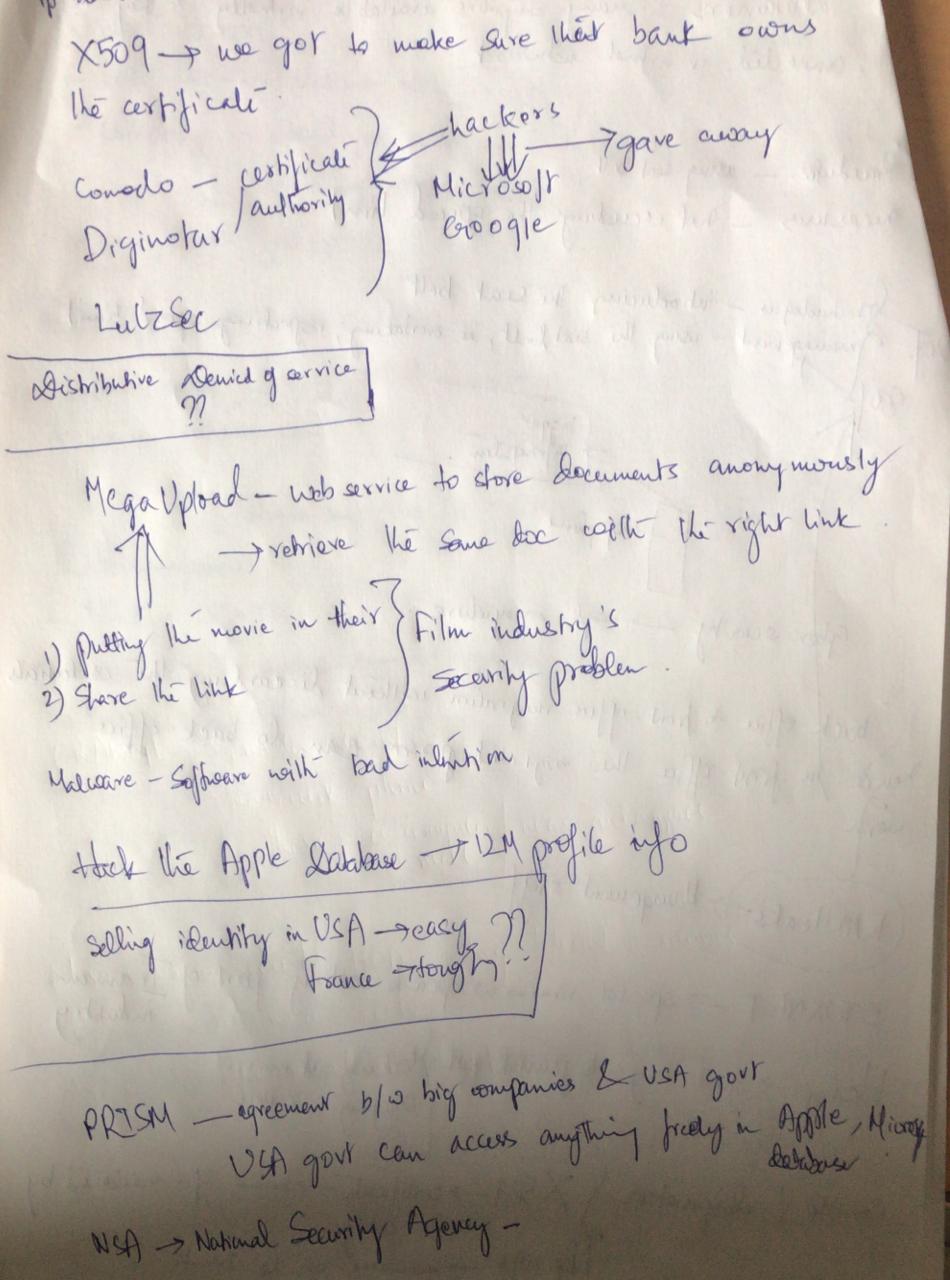 X509 → we got to make sure that bank owns
the certificate.
hackers
→ gave away
Comodo – certificate
authority
Microsoft
Google
Diginotar
LulzSec
Distributive Denied of service
??
MegaUpload – web service to store documents anonymously
→ retrieve the same doc with the right link.
1) Putting the movie in their
2) Share the link
Film industry's
security problem.
Malware – Software with bad intention
Hack the Apple Database → 12M profile info
Selling identity in USA → easy ??
France → tough ??
PRISM – agreement b/w big companies & USA govt
USA govt can access anything freely in Apple,
database
NSA → National Security Agency –